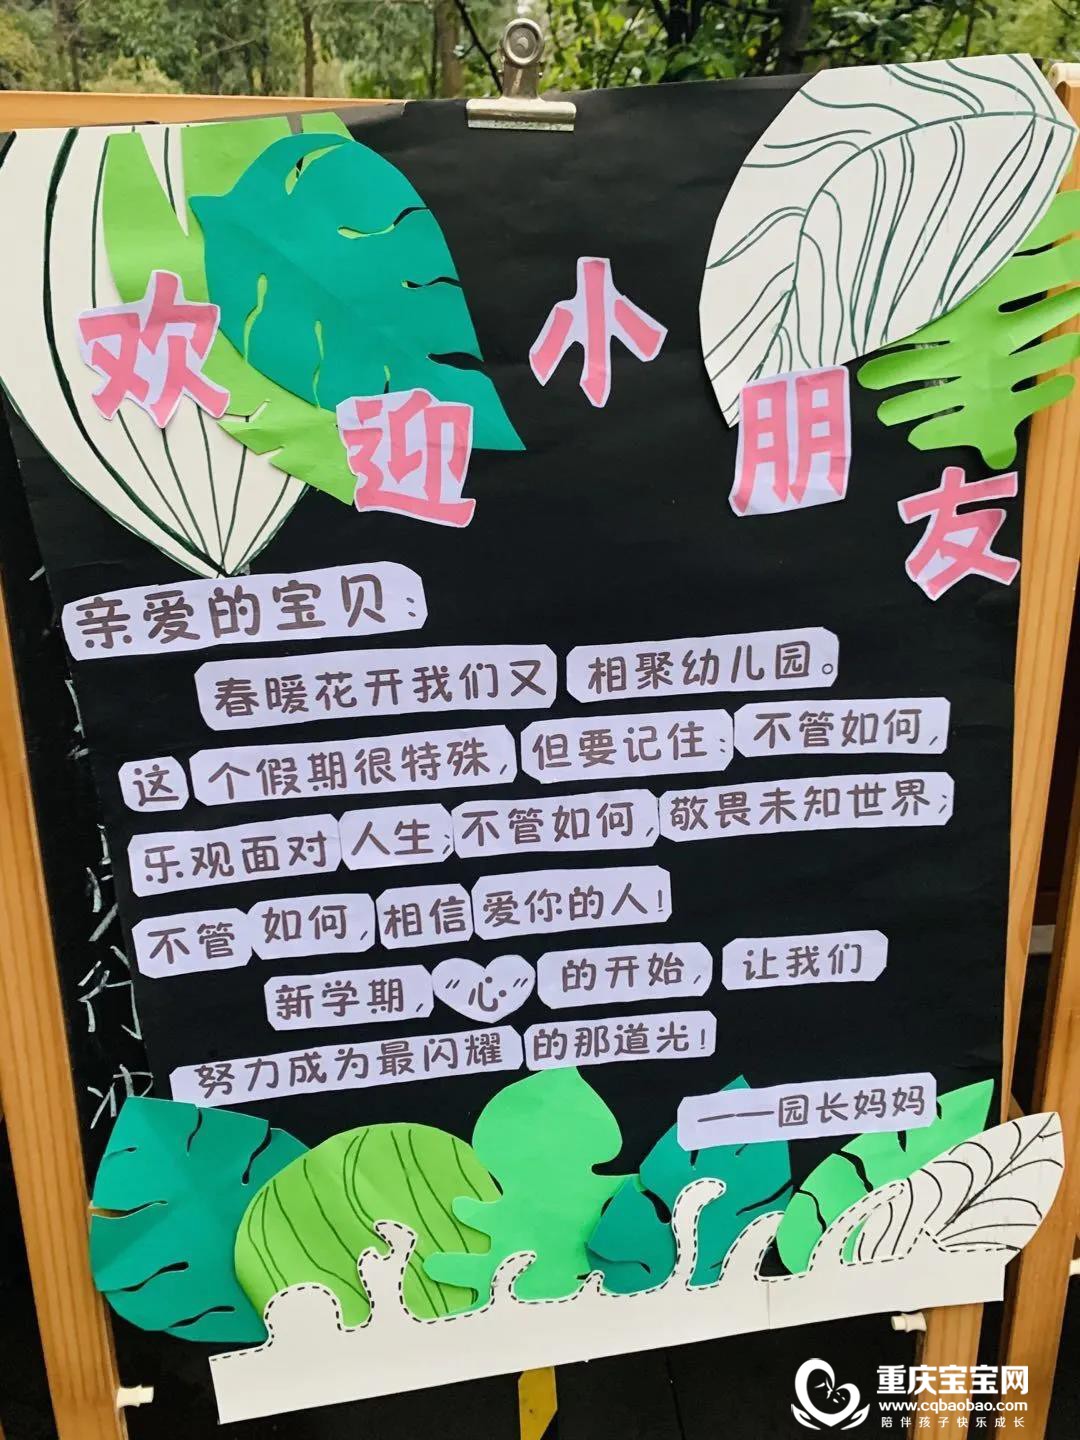 欢迎小朋友
亲爱的宝贝：
春暖花开我们又相聚幼儿园。
这个假期很特殊，但要记住：不管如何，
乐观面对人生；不管如何，敬畏未知世界；
不管如何，相信爱你的人！
新学期，“心”的开始，让我们
努力成为最闪耀的那道光！
——园长妈妈
重庆宝宝网
www.cqbaobao.com
陪伴孩子快乐成长